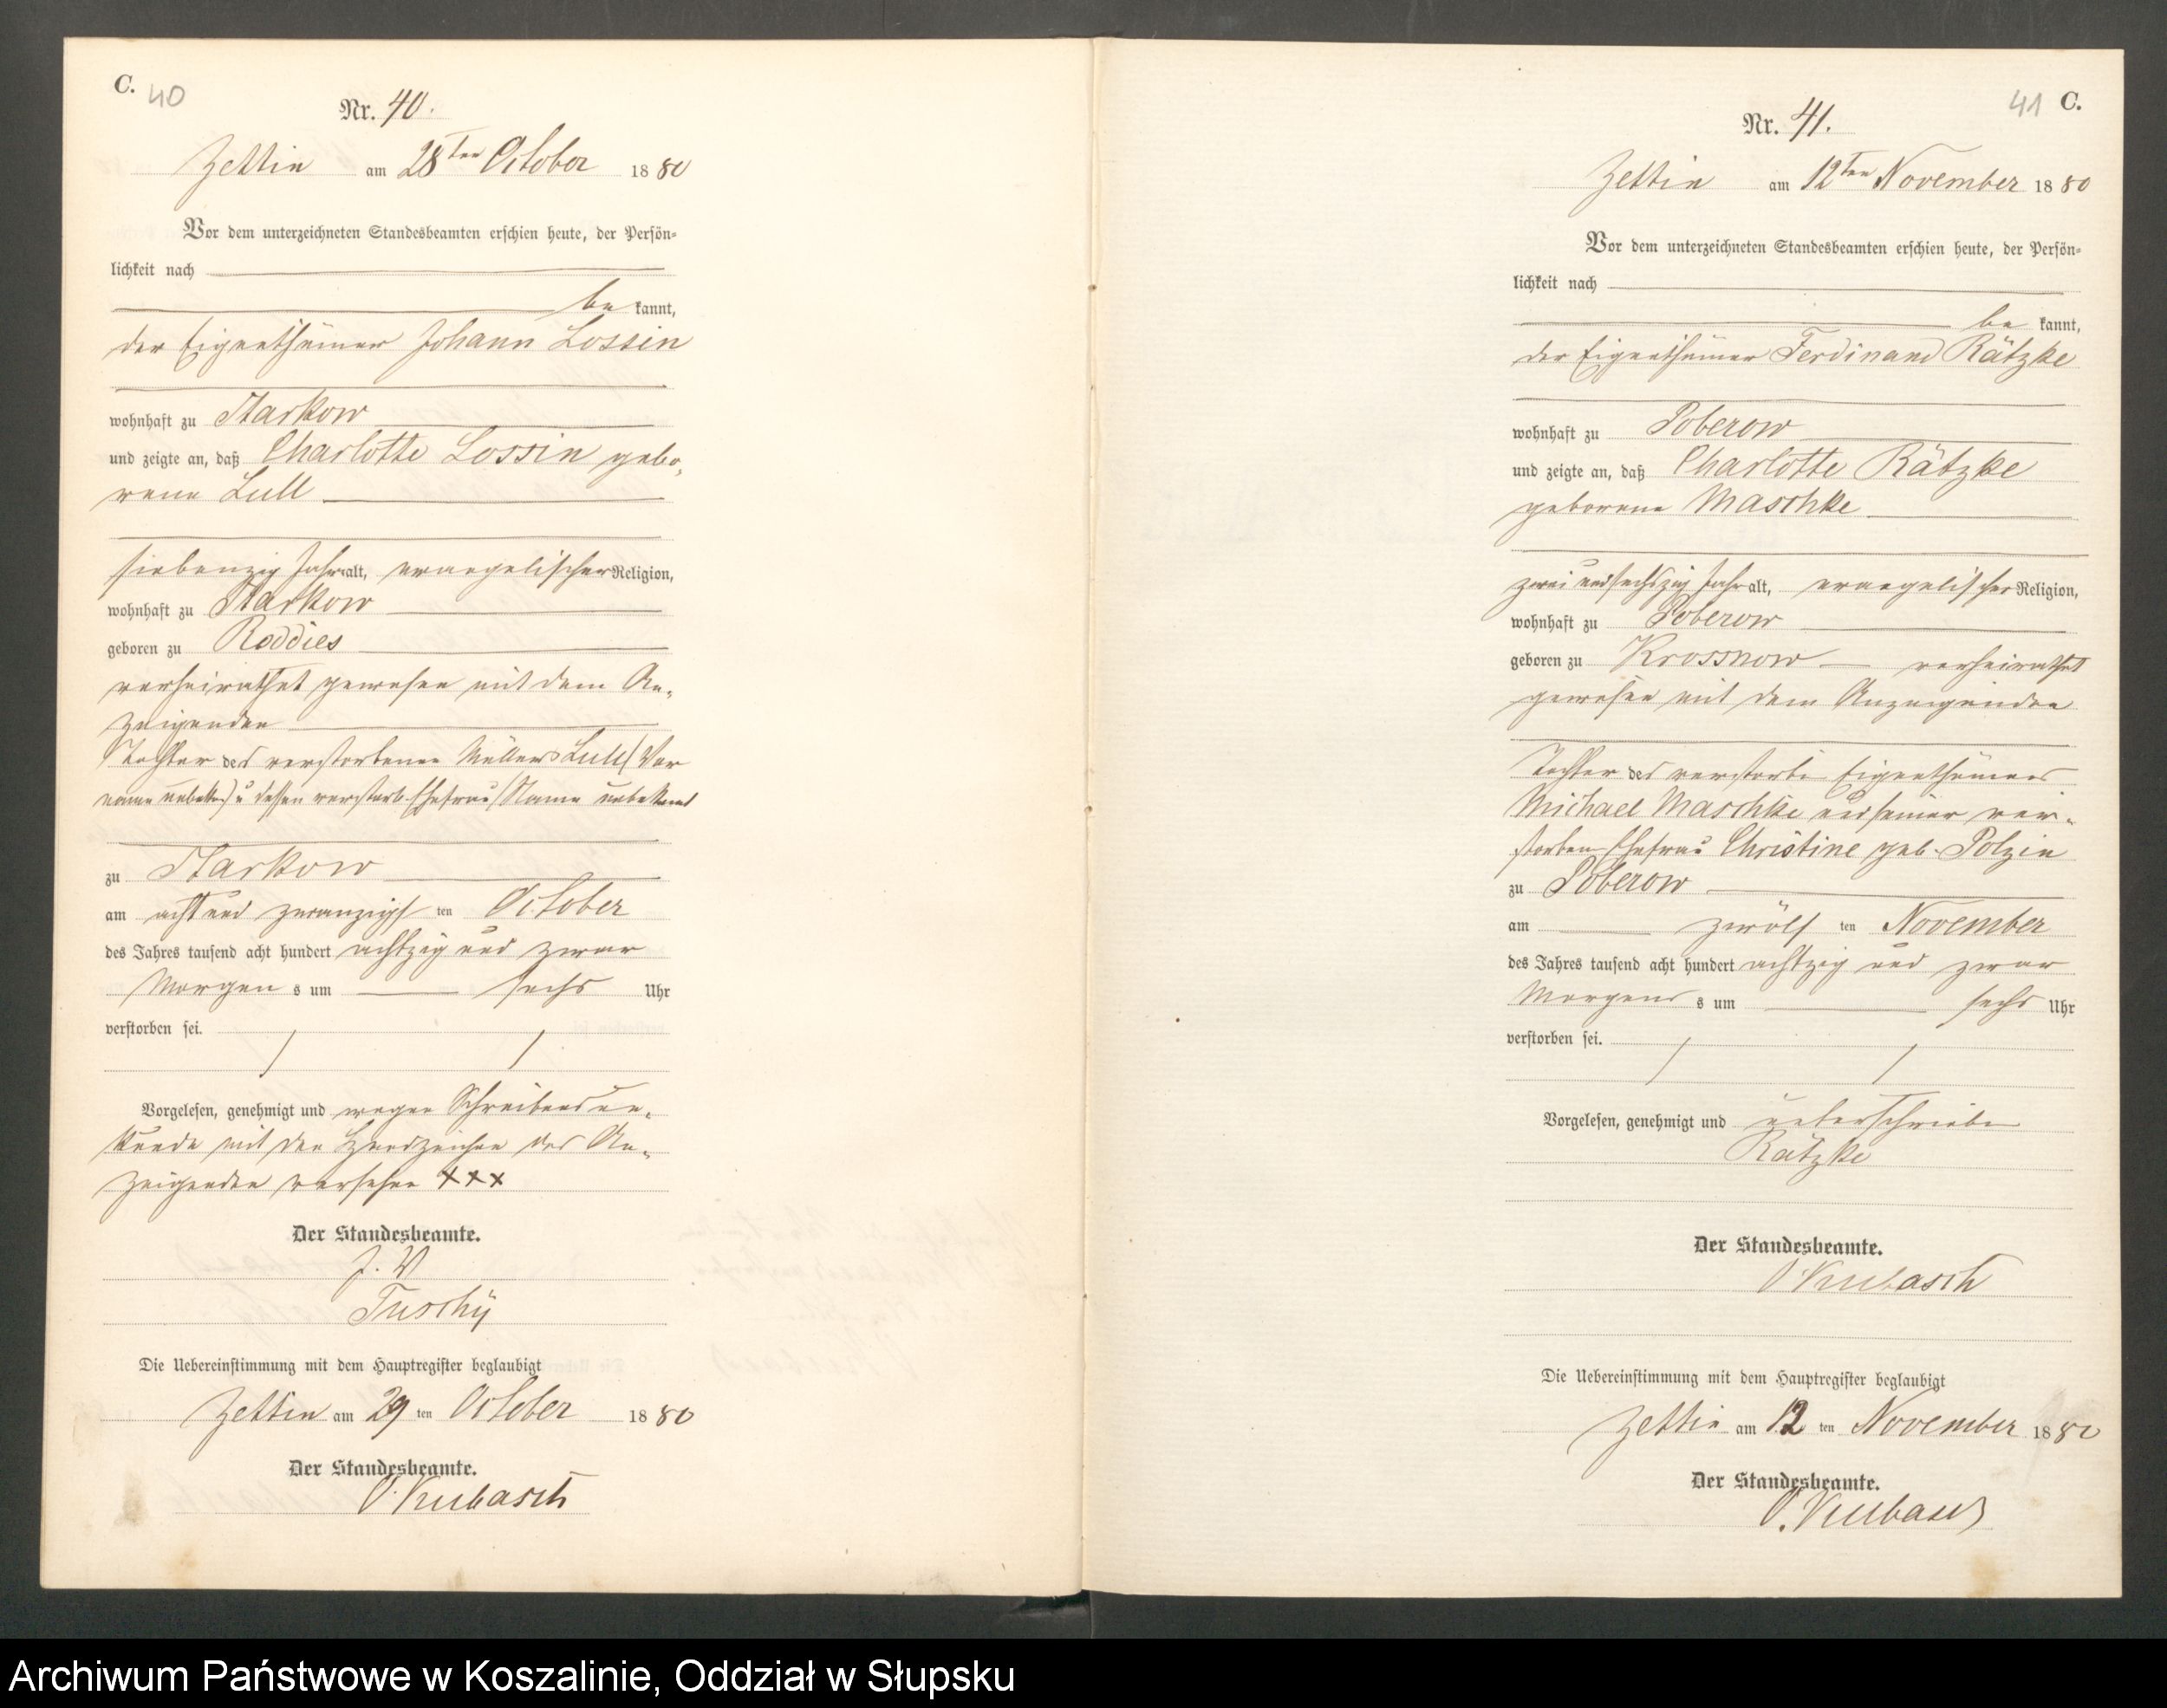 C. 40
Nr. 40.
Zettin am 28ten October 1880
Vor dem unterzeichneten Standesbeamten erschien heute, der Persön-
lichkeit nach
be kannt,
der Eigenthümer Johann Lossin
wohnhaft zu Starkow
und zeigte an, daß Charlotte Lossin gebo-
rene Lull
siebenzig Jahr alt, evangelischer Religion,
wohnhaft zu Starkow
geboren zu Roddies
verheirathet gewesen mit dem An-
zeigenden
Tochter des verstorbenen Müllers Lull (Vor
name unbekt.) u dessen verstorb. Ehefrau (Name unbekannt
zu Starkow
am acht und zwanzigs ten October
des Jahres tausend acht hundert achtzig und zwar
Morgen s um sechs Uhr
verstorben sei.
Vorgelesen, genehmigt und wegen Schreibensun-
kunde mit den Handzeichen des An-
zeigenden versehen +++
Der Standesbeamte.
J. V
Tuschy
Die Uebereinstimmung mit dem Hauptregister beglaubigt
Zettin am 29 ten October 1880
Der Standesbeamte.
O. Kubasch
41 C.
Nr. 41.
Zettin am 12ten November 1880
Vor dem unterzeichneten Standesbeamten erschien heute, der Persön-
lichkeit nach
be kannt,
der Eigenthümer Ferdinand Rätzke
wohnhaft zu Poberow
und zeigte an, daß Charlotte Rätzke
geborene Maschke
zwei und sechszig Jahr alt, evangelischer Religion,
wohnhaft zu Poberow
geboren zu Krossnow verheirathet
gewesen mit dem Anzeigenden
Tochter des verstorb. Eigenthümers
Michael Maschke und seiner ver-
storben Ehefrau Christine geb. Polzin
zu Poberow
am zwölf ten November
des Jahres tausend acht hundert achtzig und zwar
Morgens s um sechs Uhr
verstorben sei.
Vorgelesen, genehmigt und unterschrieben
Rätzke
Der Standesbeamte.
O Kubasch
Die Uebereinstimmung mit dem Hauptregister beglaubigt
Zettin am 12 ten November 1880
Der Standesbeamte.
O. Kubasch
Archiwum Państwowe w Koszalinie, Oddział w Słupsku